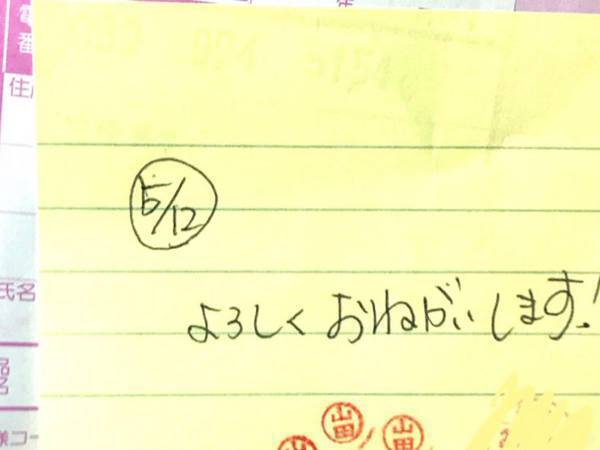 年
番
住
5/12
氏名
よろしくおねがいします!
山田
山田